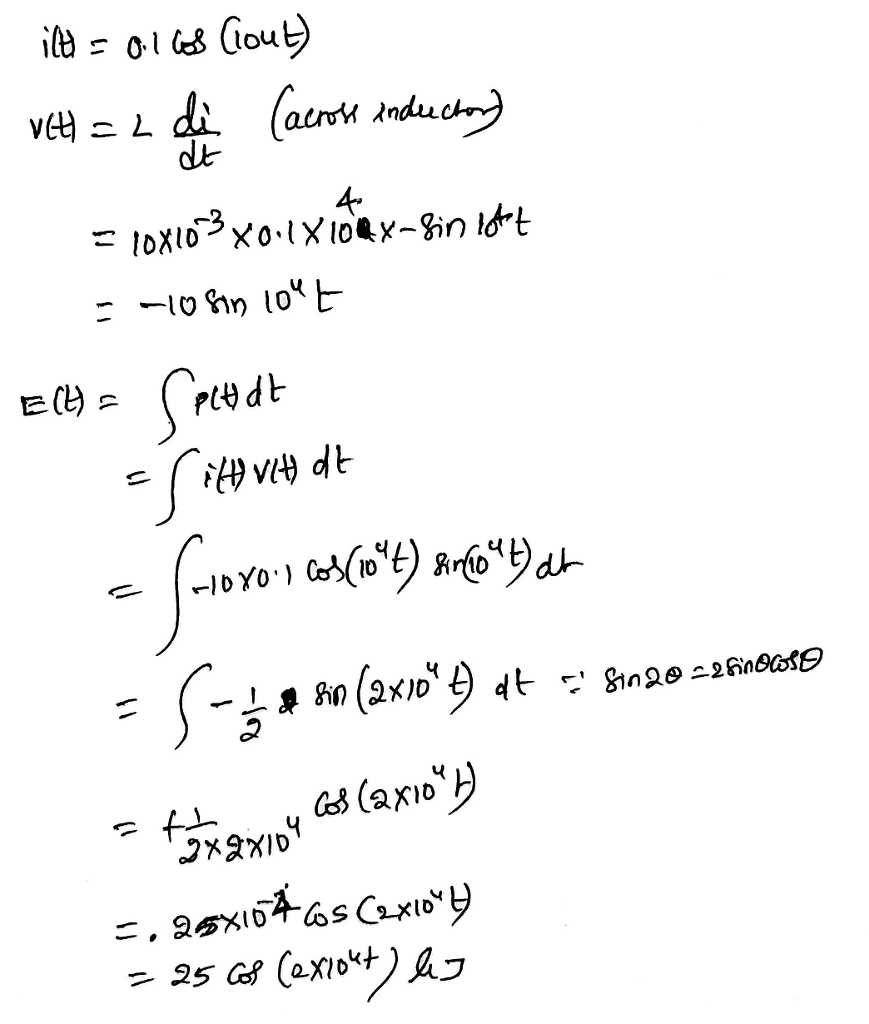 i(t) = 0.1 cos (10ut)
v(t) = L di/dt (across inductor)
= 10x10^-3 x 0.1 x 10^4 x - sin 10^4 t
= -10 sin 10^4 t
E(t) = ∫ p(t) dt
= ∫ i(t) v(t) dt
= ∫ -10 x 0.1 cos(10^4 t) sin(10^4 t) dt
= ∫ - 1/2 sin (2x10^4 t) dt ∵ sin2θ = 2 sinθ cosθ
= + 1/2x2x10^4 cos (2x10^4 t)
= . 25x10^-4 cos (2x10^4 t)
= 25 cos (2x10^4 t) μJ